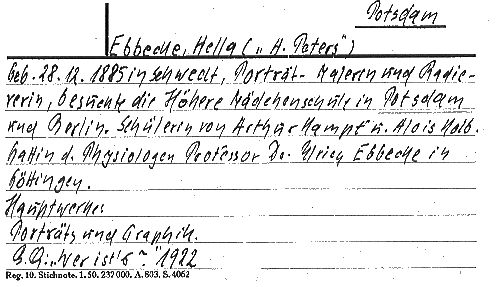 Potsdam
Ebbecke, Hella („H. Peters")
geb. 28.12.1885 in Schwedt, Porträt-Malerin und Radie-
rerin, besuchte die Höhere Mädchenschule in Potsdam
und Berlin. Schülerin von Arthur Kampf u. Alois Kolb.
Gattin d. Physiologen Professor Dr. Ulrich Ebbecke in
Göttingen.
Hauptwerke:
Porträts und Graphik.
S.A.: „Wer ist's?" 1922
Reg. 10. Stichnote. 1. 50. 237000. A. 803. S. 4062